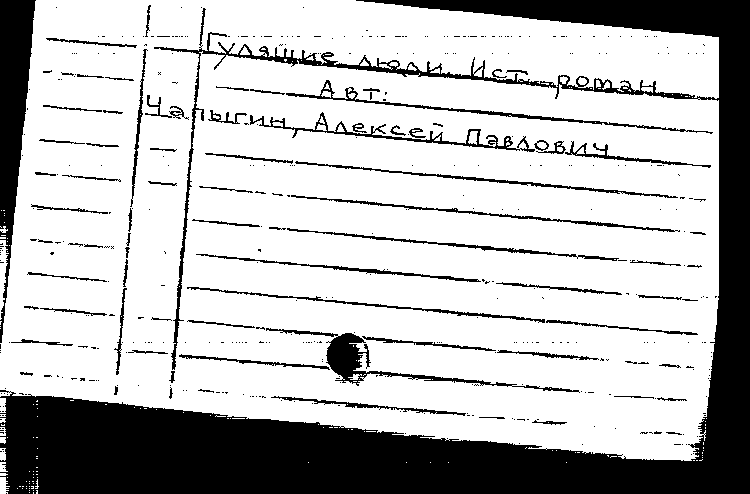 Гулящие люди. Ист. роман
Авт:
Чапыгин, Алексей Павлович